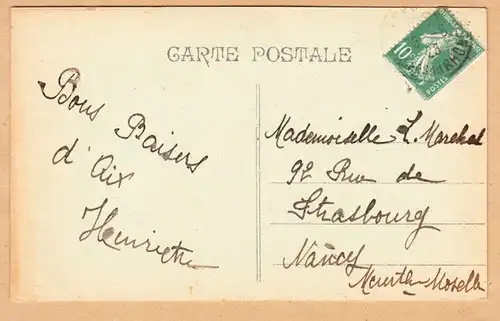 CARTE POSTALE
10
POSTES
Bons Baisers
d'Aix
Henriette
Mademoiselle L. Marchal
92 Rue de
Strasbourg
Nancy
Meurthe-Moselle